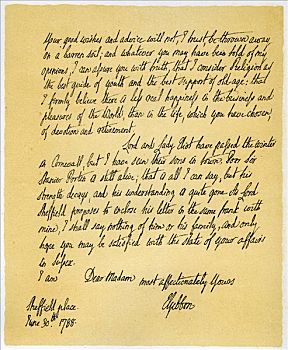 Your good wishes and advice will not, I trust be thrown away
on a barren soil; and whatever you may have been told of my
opinions, I can assure you with truth, that I consider Religion as
the best guide of youth and the best support of old age: that
I firmly believe there is less real happiness in the business and
pleasures of the World, than in the life which you have chosen,
of devotion and retirement.
Lord and Lady Eliot have passed the winter
in Cornwall but I have seen their sons in town. Poor Sir
Stanier Porten is still alive; that is all I can say, but his
strength decays and his understanding is quite gone. As Lord
Sheffield proposes to enclose his letter in the same frank with
mine, I shall say nothing of him or his family, and only
hope you may be satisfied with the state of your affairs
in Sussex.
I am Dear Madam most affectionately Yours
EGibbon
Sheffield place
June 30th 1788.